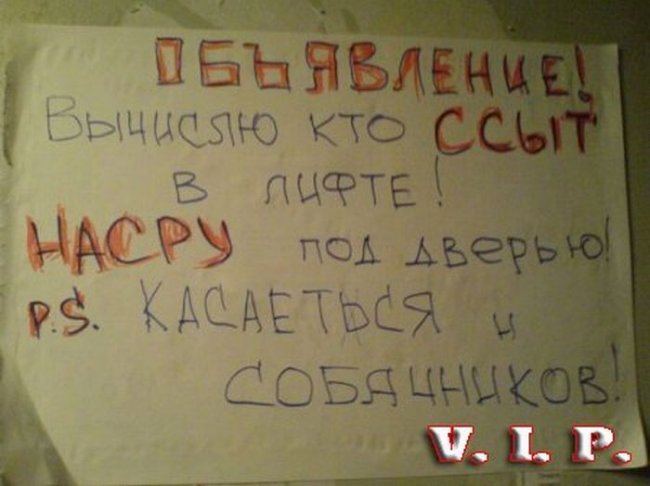 ОБЪЯВЛЕНИЕ!
Вычислю кто ССЫТ
в лифте!
НАСРУ под дверью!
P.S. КАСАЕТЬСЯ и
СОБАЧНИКОВ!
V. I. P.